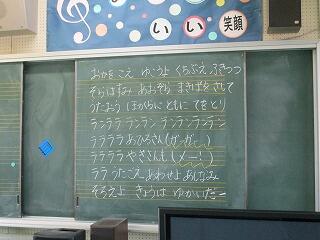 いい笑顔
おかをこえ ゆこうよ くちぶえ ふきつつ
そらはすみ あおぞら まきばをさして
うたおう ほがらに ともに てをとり
ランララ ララララ ランラン ランランランラン
ララララ あひるさん(ガァガァー)
ララララ やぎさんも(メーー)
ララ うたごえ あわせよ あしなみ
そろえよ きょうは ゆかいだー